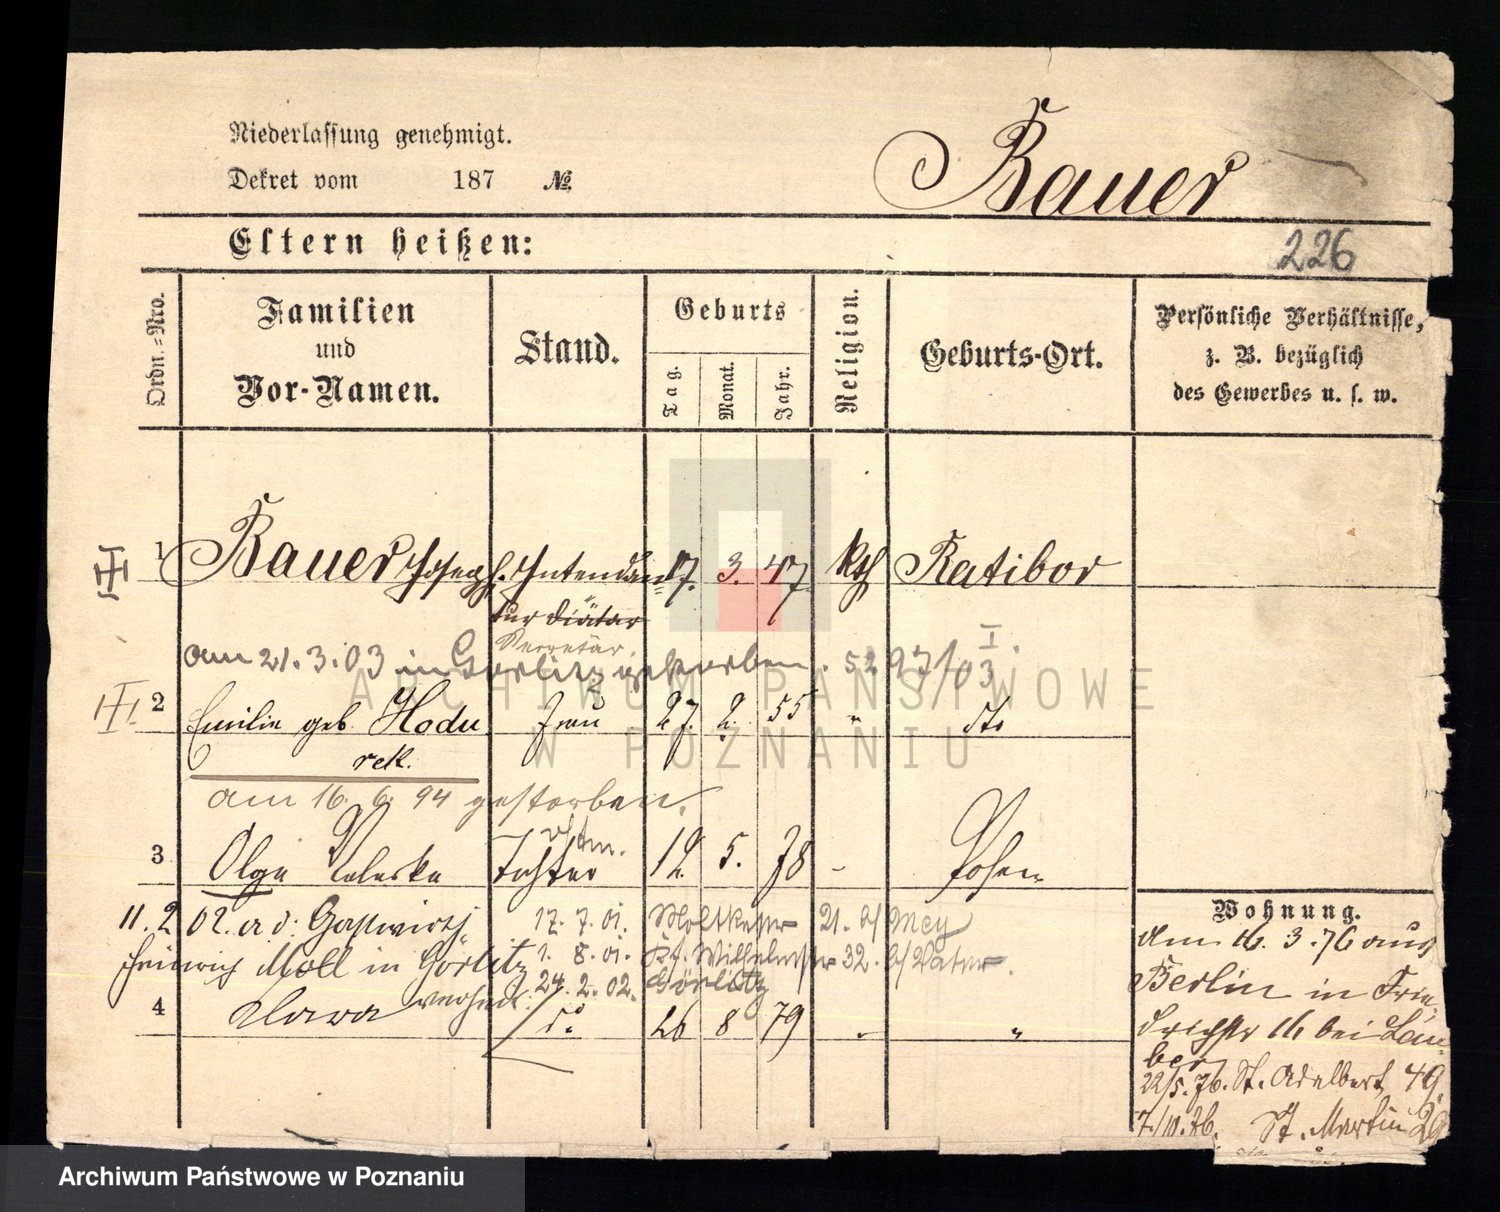 Niederlassung genehmigt.
Bauer
Dekret vom 187 №
Eltern heißen:
226
Ordn.=Nro.
Familien und Vor-Namen.
Stand.
Geburts
Tag.
Monat.
Jahr.
Religion.
Geburts-Ort.
Persönliche Verhältnisse,
z. B. bezüglich
des Gewerbes u. s. w.
1 Bauer Joseph. Intendan= 17. 3. 47 kth Ratibor
tur Diätar
Secretär.
am 21.3.03 in Görlitz gestorben. 5293/03 I.
ARCHIWUM PAŃSTWOWE
2 Emilie geb. Hodu Frau 27. 2. 55 " dto
W POZNANIU
rek.
am 16. 6. 94 gestorben.
3 Olga Valeska Tochter 12. 5. 78 - Posen
Wohnung.
11. 2 02. a. d. Gastwirth 17. 7. 01. Moltkestr 21. b/ Mey
Heinrich Moll in Görlitz 1. 8. 01. Kg. Wilhelmstr 32. b/ Vater.
verh. 24. 2. 02. Görlitz
4 Clara do 26 8 79 " "
Am 16. 3. 76 aus
Berlin in Frie=
drichstr 16 bei Lau=
ber
22/5. 76. St. Adalbert 49.
7./10. 76. St. Martin 29
Archiwum Państwowe w Poznaniu